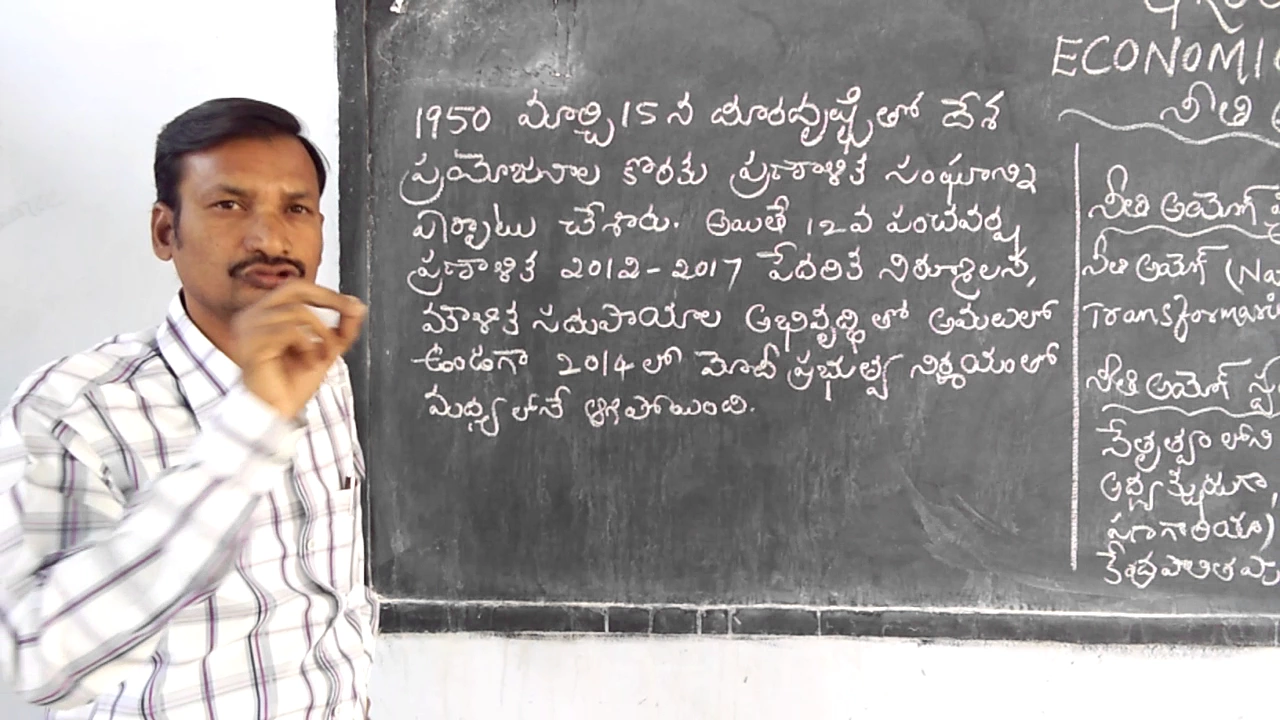 1950 మార్చి 15 న దూరదృష్టితో దేశ
ప్రయోజనాల కొరకు ప్రణాళిక సంఘాన్ని
ఏర్పాటు చేశారు. అయితే 12వ పంచవర్ష
ప్రణాళిక 2012-2017 పేదరిక నిర్మూలన,
మౌళిక సదుపాయాల అభివృద్ధితో అమలులో
ఉండగా 2014లో మోదీ ప్రభుత్వ నిర్ణయంతో
మధ్యలోనే ఆగిపోయింది.
ECONOMI
నీతి
నీతి అయోగ్
నీతి అయోగ్ (Na
Transformari
నీతి అయోగ్
నేతృత్వం లోని
అధ్యక్షుడుగా,
పనగారియా)
కేంద్రపాలిత